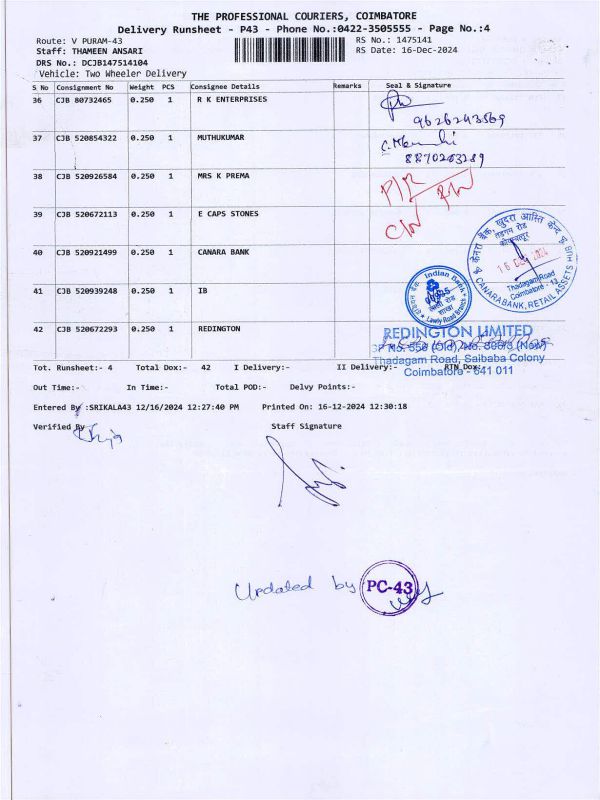 THE PROFESSIONAL COURIERS, COIMBATORE
Delivery Runsheet - P43 - Phone No.:0422-3505555 - Page No.:4
Route: V PURAM-43 RS No.: 1475141
Staff: THAMEEN ANSARI RS Date: 16-Dec-2024
DRS No.: DCJB147514104
Vehicle: Two Wheeler Delivery
S No Consignment No Weight PCS Consignee Details Remarks Seal & Signature
36 CJB 80732465 0.250 1 R K ENTERPRISES
9626243569
37 CJB 520854322 0.250 1 MUTHUKUMAR
8870263289
38 CJB 520926584 0.250 1 MRS K PREMA
39 CJB 520672113 0.250 1 E CAPS STONES
40 CJB 520921499 0.250 1 CANARA BANK
केनरा बैंक, खुदरा आस्ति केन्द्र
तडागम रोड
कोयम्बतूर
16 DEC 2024
Thadagam Road
Coimbatore - 13
CANARA BANK, RETAIL ASSETS HUB
41 CJB 520939248 0.250 1 IB
Indian Bank
Lawly Road Branch
42 CJB 520672293 0.250 1 REDINGTON
REDINGTON LIMITED
Thadagam Road, Saibaba Colony
Coimbatore - 641 011
Tot. Runsheet:- 4 Total Dox:- 42 I Delivery:- II Delivery:- RTN Dox:-
Out Time:- In Time:- Total POD:- Delvy Points:-
Entered By :SRIKALA43 12/16/2024 12:27:40 PM Printed On: 16-12-2024 12:30:18
Verified By Staff Signature
Updated by PC-43